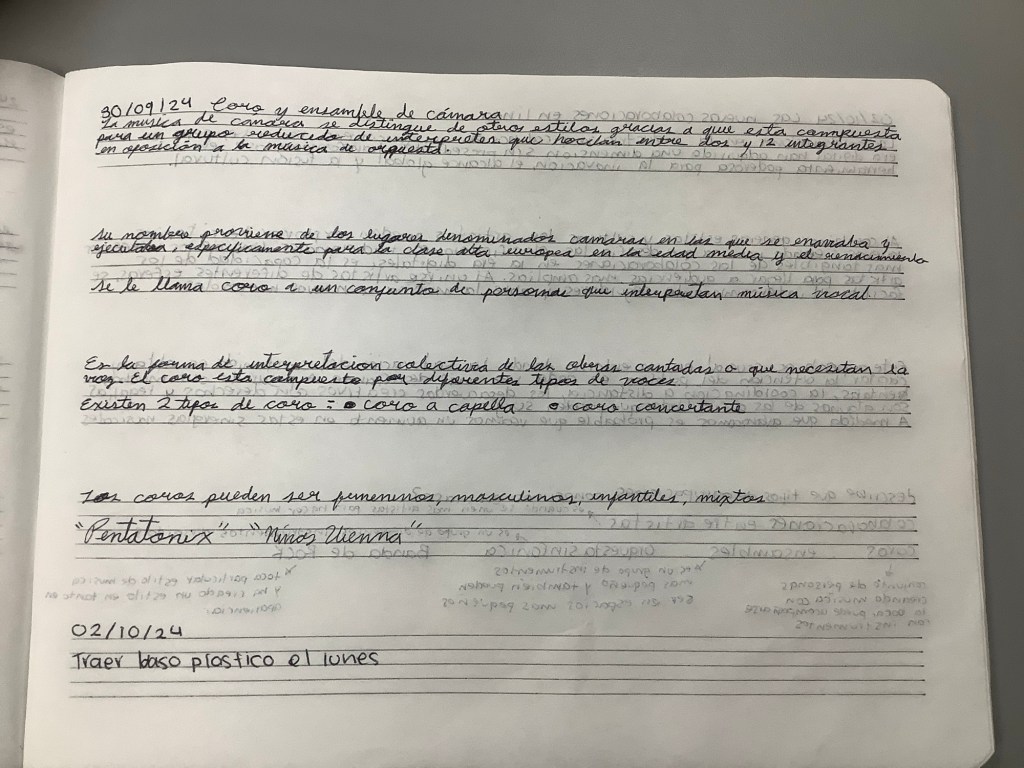 30/09/24 Coro y ensamble de cámara
La música de camara se distingue de otros estilos gracias a que esta compuesta
para un grupo reducido de interpretes que hocilan entre dos y 12 integrantes
en oposición a la música de orquesta.
su nombre proviene de los lugares denominados camaras en las que se ensayaba y
ejecutaba, especificamente para la clase alta europea en la edad media y el renacimiento
se le llama coro a un conjunto de personas que interpretan música vocal
Es la forma de interpretacion colectiva de las obras cantadas o que necesitan la
voz. El coro esta compuesto por diferentes tipos de voces
Existen 2 tipos de coro: • coro a capella • coro concertante
Los coros pueden ser femeninos, masculinos, infantiles, mixtos
"Pentatonix" "Niños Vienna"
02/10/24
Traer baso plastico el lunes